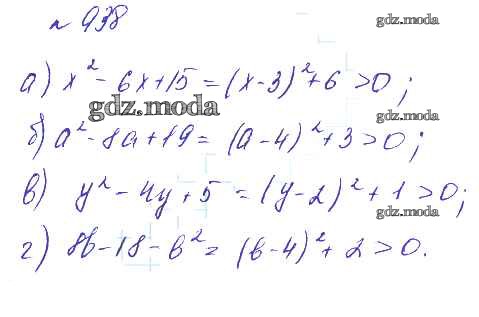 № 938
gdz.moda
а) x² - 6x + 15 = (x-3)² + 6 > 0;
gdz.moda
gdz.moda
б) a² - 8a + 19 = (a-4)² + 3 > 0;
в) y² - 4y + 5 = (y-2)² + 1 > 0;
gdz.moda
г) 8b - 18 - b² = (b-4)² + 2 > 0.